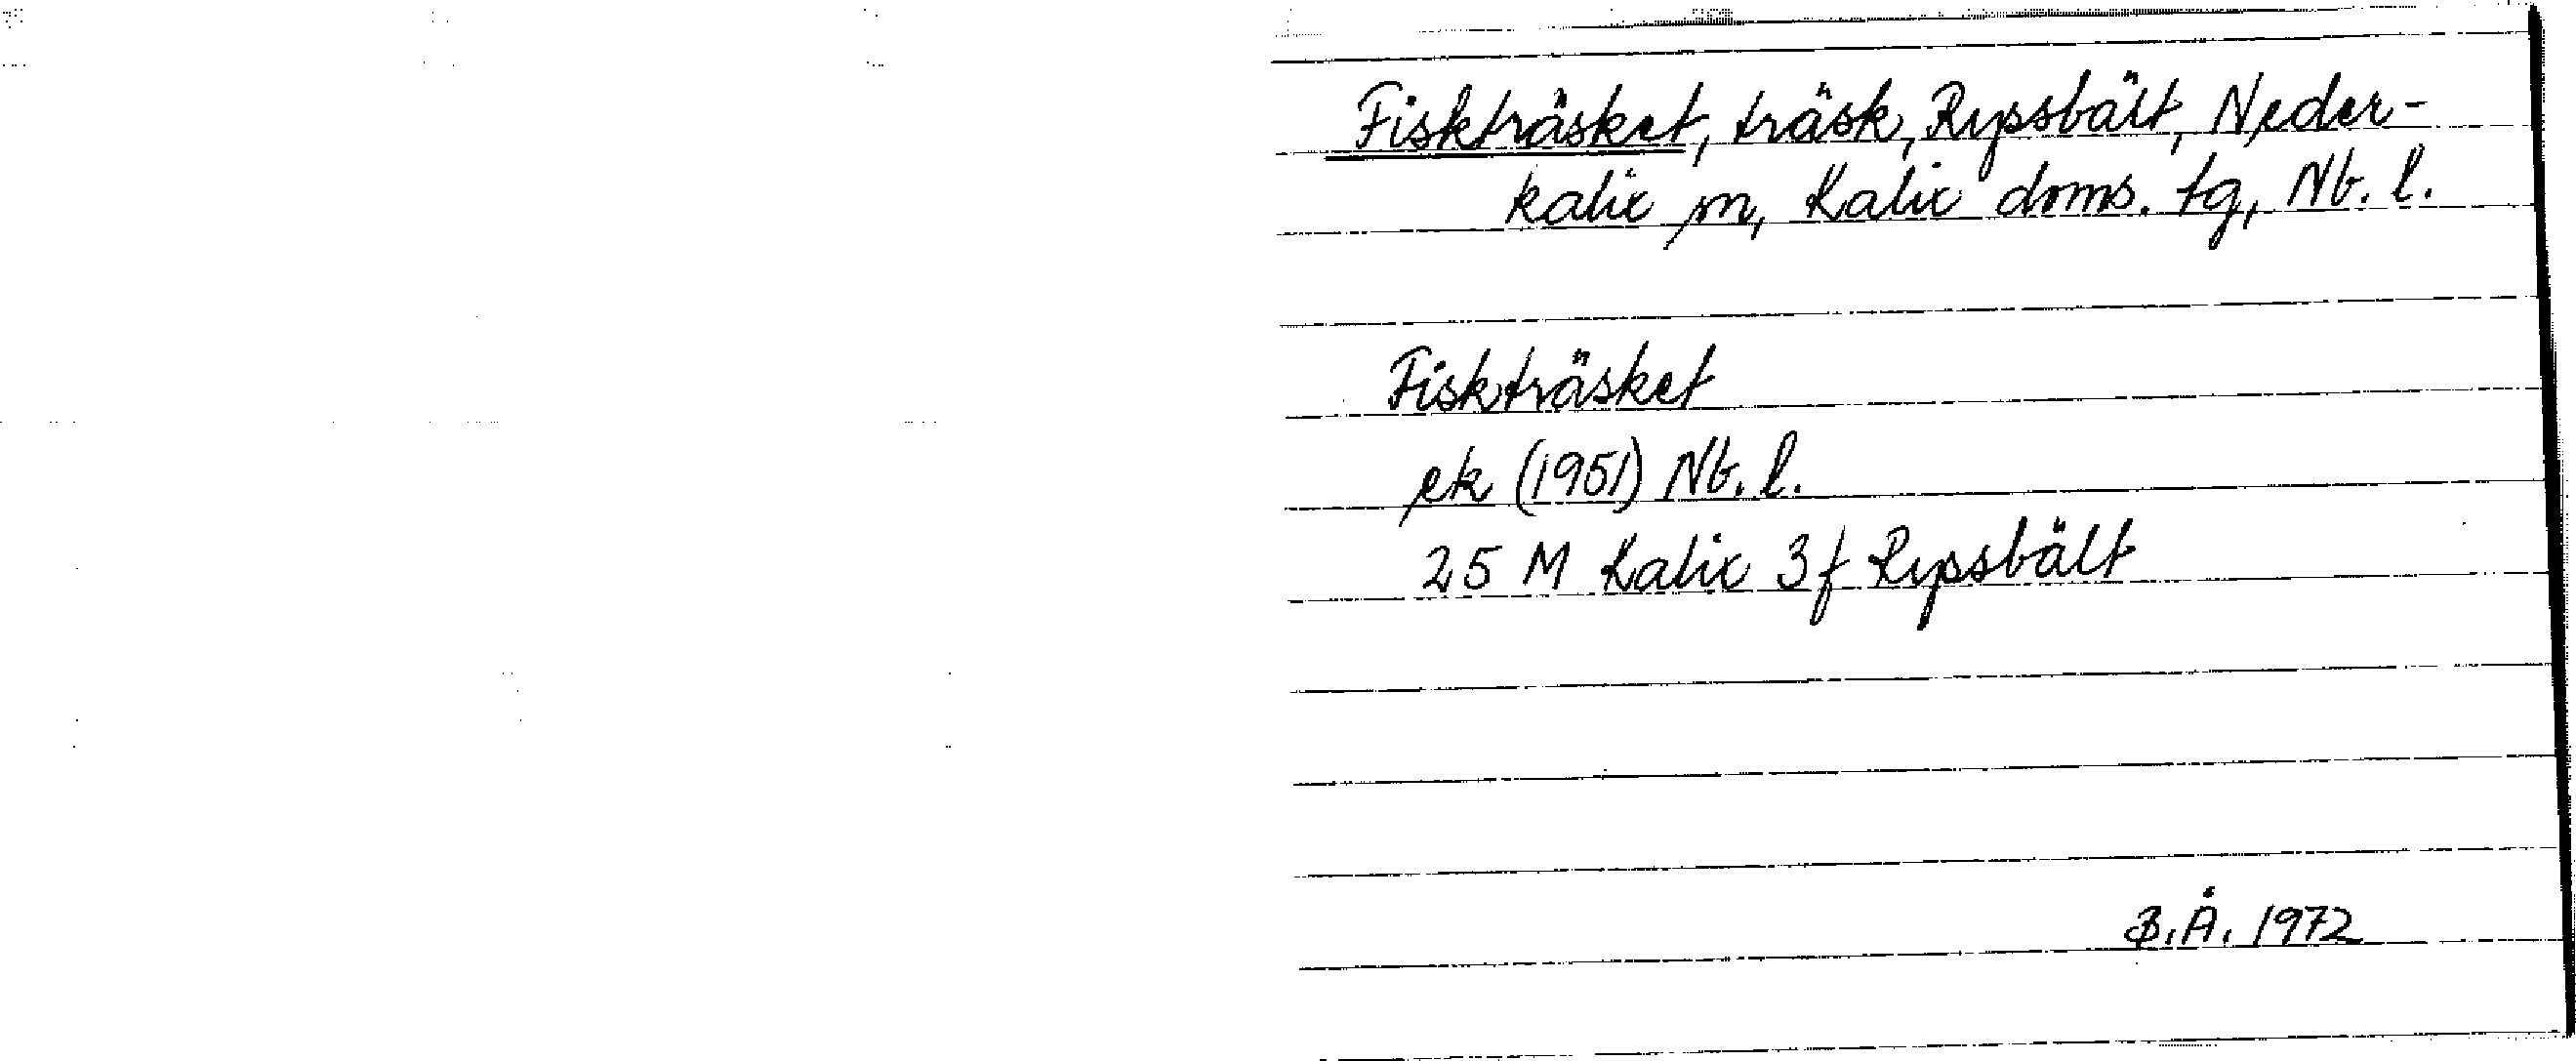 Fiskträsket, träsk, Rypsbält, Neder-
kalix sn, Kalix doms. tg, Nb. l.
Fiskträsket
ek (1951) Nb. l.
25 M Kalix 3f Rypsbält
B.Å. 1972